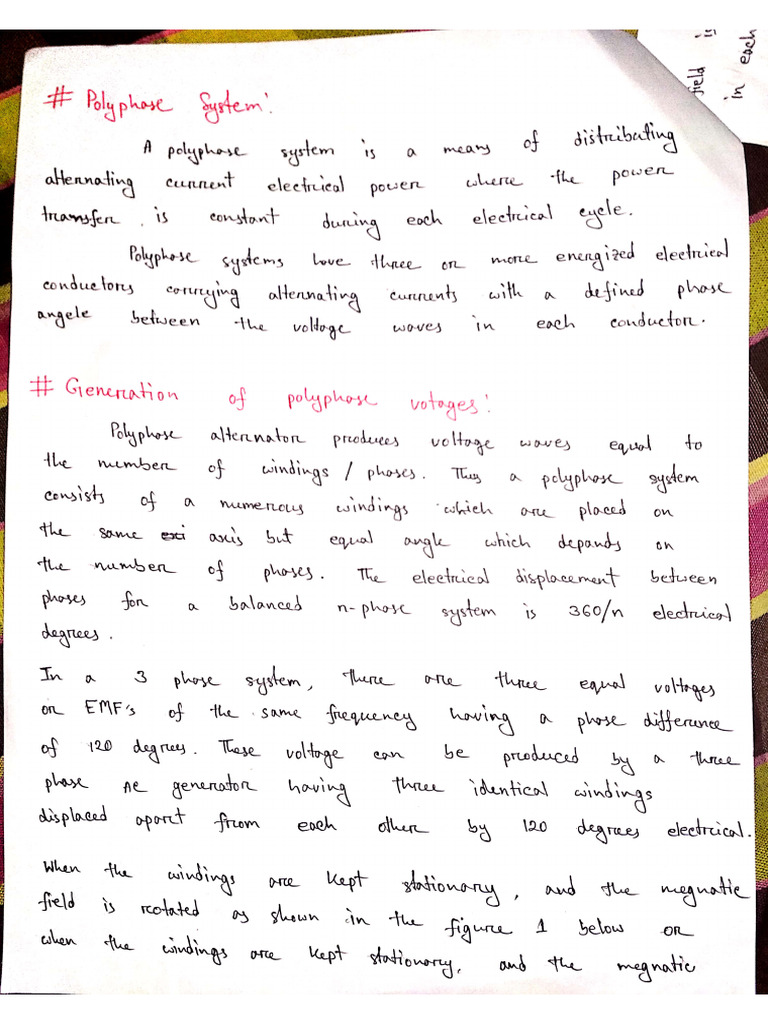 # Polyphase System:
A polyphase system is a means of distributing
alternating current electrical power where the power
transfer is constant during each electrical cycle.
Polyphase systems have three or more energized electrical
conductors carrying alternating currents with a defined phase
angele between the voltage waves in each conductor.
# Generation of polyphase votages:
Polyphase alternator produces voltage waves equal to
the number of windings / phases. Thus a polyphase system
consists of a numerous windings which are placed on
the same axis but equal angle which depands on
the number of phases. The electrical displacement between
phases for a balanced n-phase system is 360/n electrical
degrees.
In a 3 phase system, there are three equal voltages
or EMF's of the same frequency having a phase difference
of 120 degrees. These voltage can be produced by a three
phase AC generator having three identical windings
displaced apart from each other by 120 degrees electrical.
When the windings are kept stationary, and the megnatic
field is rotated as shown in the figure 1 below or
when the windings are kept stationary, and the megnatic
field is
in each